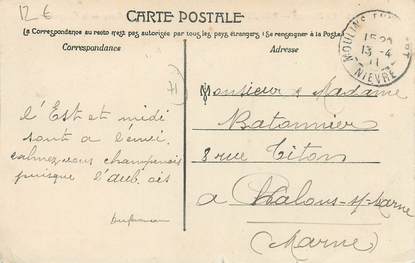 12 €
CARTE POSTALE
La Correspondance au recto n'est pas autorisée par tous les pays étrangers (Se renseigner à la Poste)
Correspondance
Adresse
MOULINS
15
13-4
11
NIEVRE
Monsieur & Madame
Batonnier
8 rue Titon
a Chalons-s/-Marne
(Marne)
l'Est et midi
sont a l'envi
calmez-vous champenois
puisque l'aub, ois